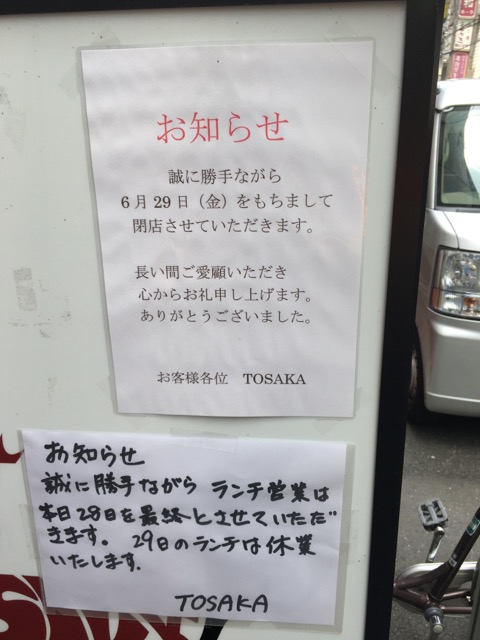 お知らせ
誠に勝手ながら
6月29日（金）をもちまして
閉店させていただきます。
長い間ご愛顧いただき
心からお礼申し上げます。
ありがとうございました。
お客様各位 TOSAKA
お知らせ
誠に勝手ながら ランチ営業は
本日28日を最終とさせていただ
きます。 29日のランチは休業
いたします。
TOSAKA